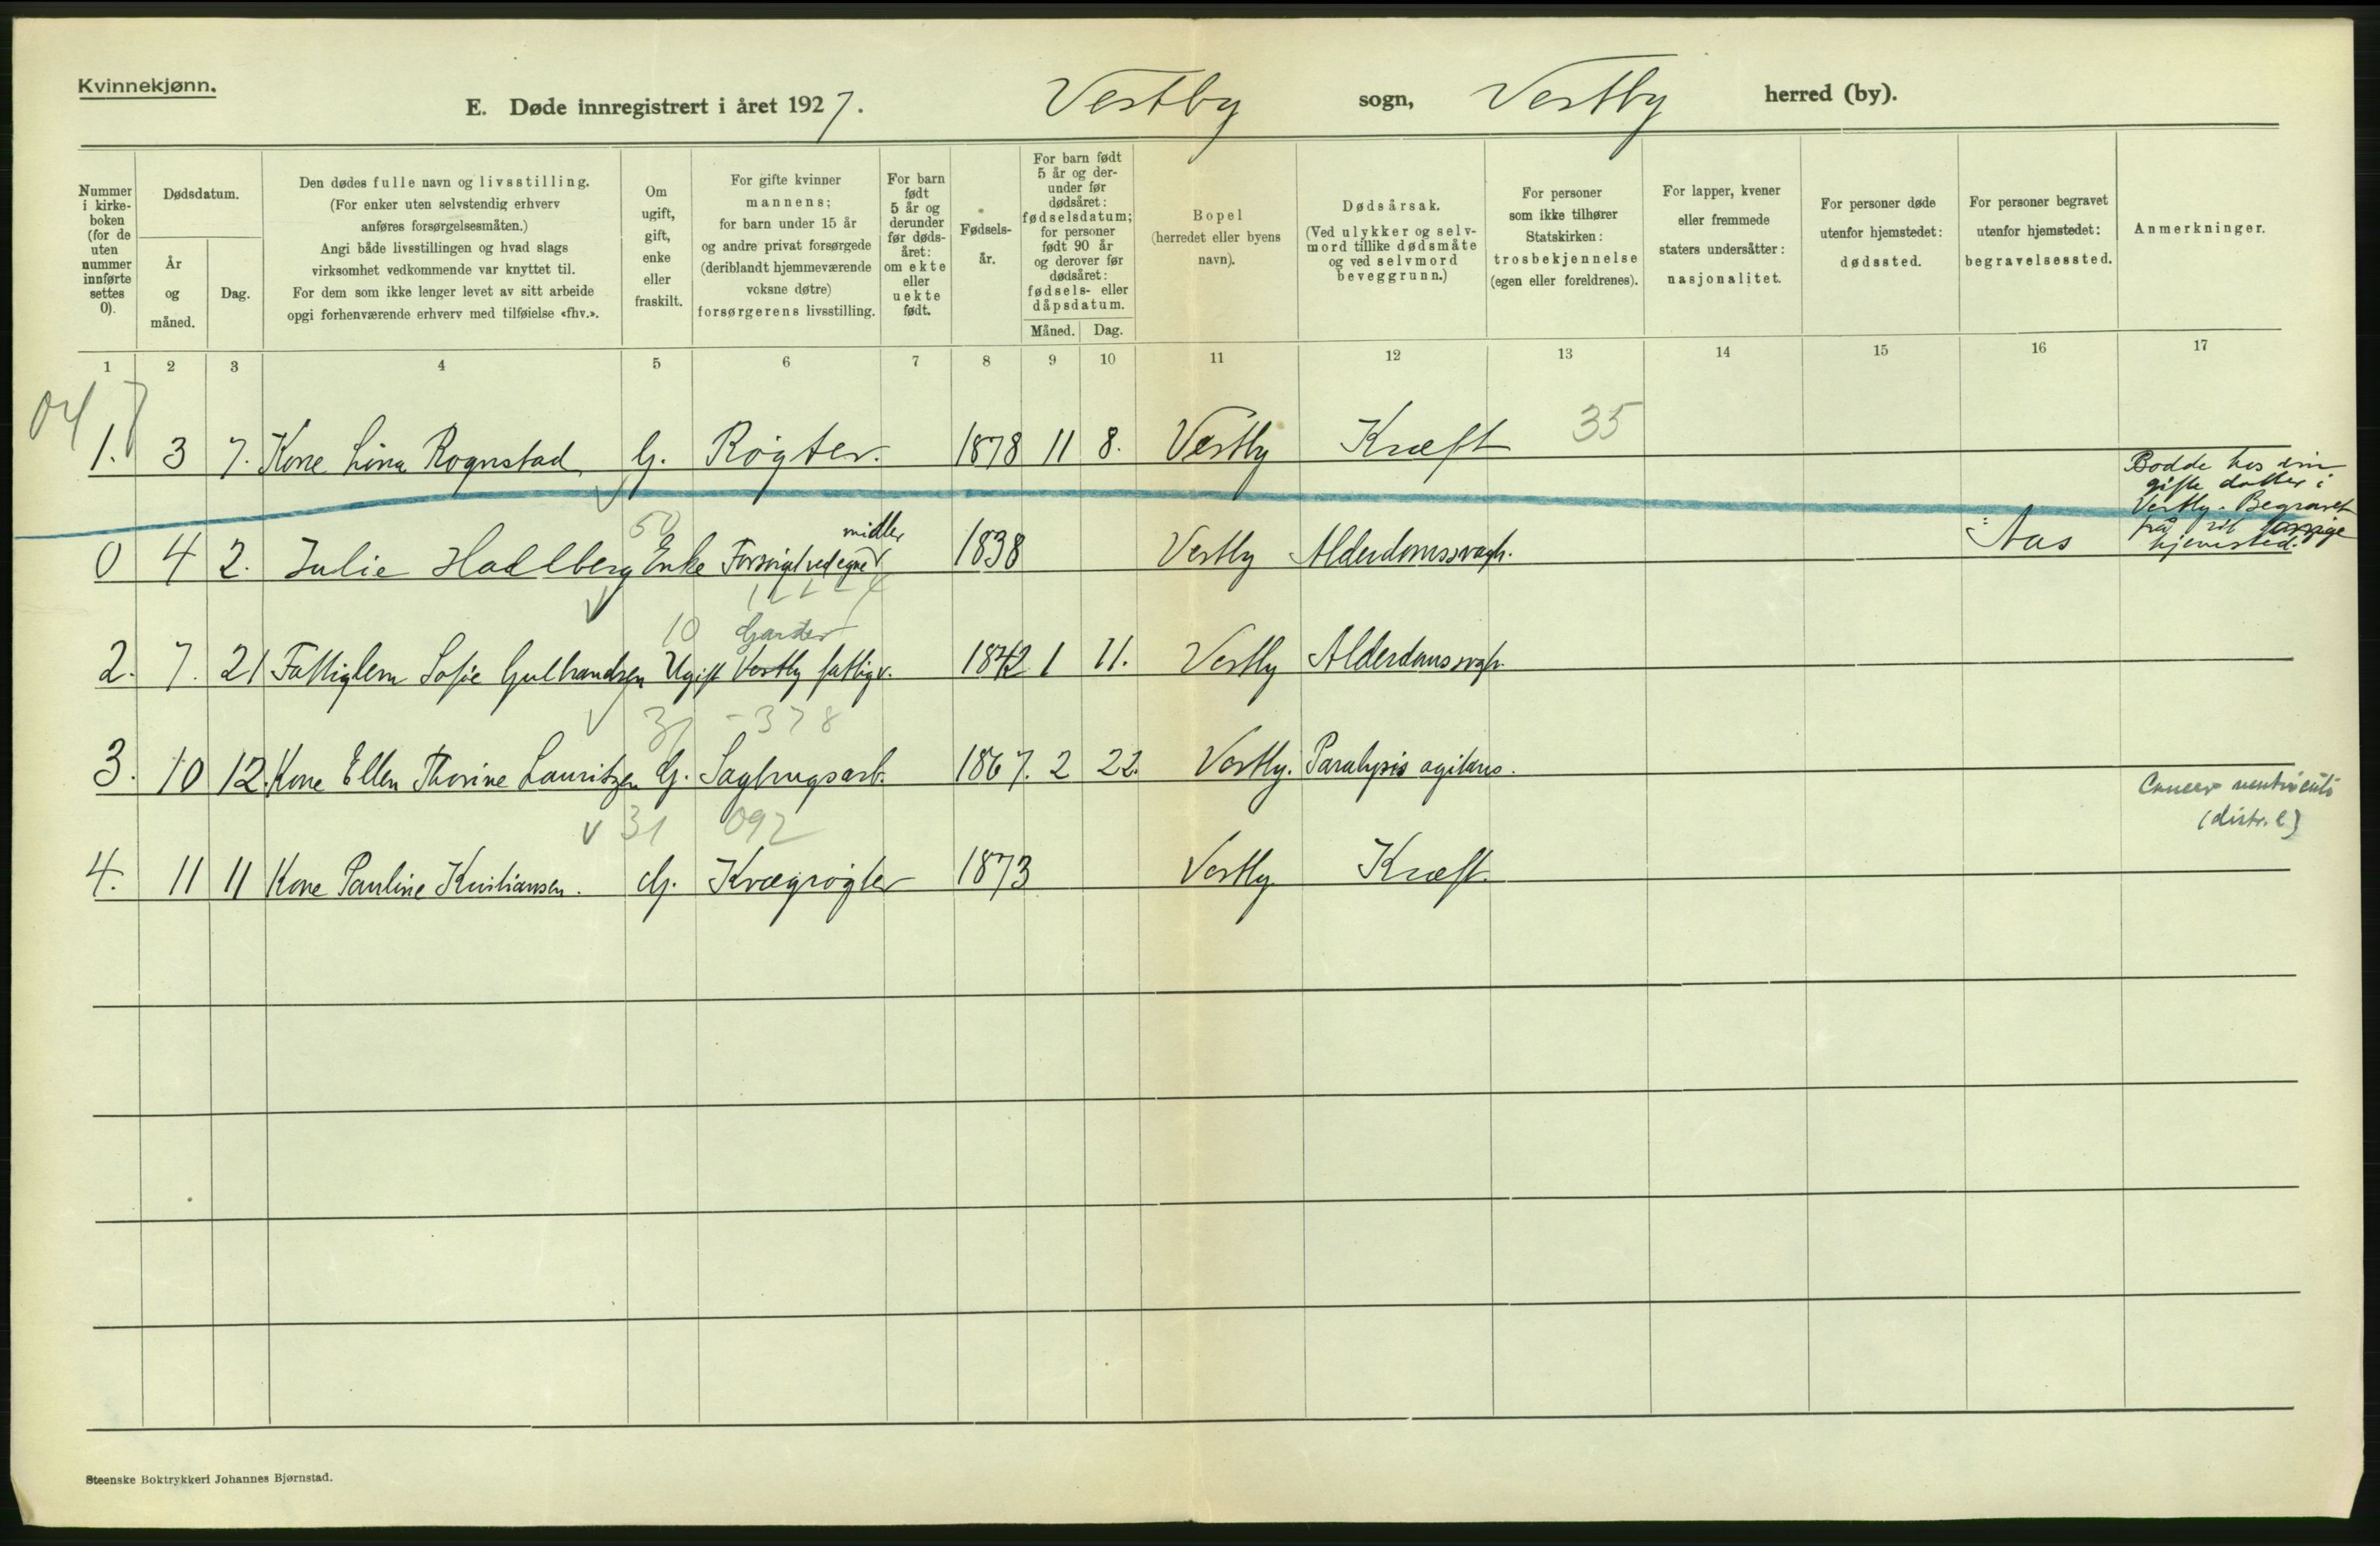 Kvinnekjønn.
E. Døde innregistrert i året 1927. Vestby sogn, Vestby herred (by).
Nummer i kirke-boken (for de uten nummer innførte settes 0).
Dødsdatum.
År og måned.
Dag.
Den dødes fulle navn og livsstilling.
(For enker uten selvstendig erhverv
anføres forsørgelsesmåten.)
Angi både livsstillingen og hvad slags
virksomhet vedkommende var knyttet til.
For dem som ikke lenger levet av sitt arbeide
opgi forhenværende erhverv med tilføielse «fhv.».
Om ugift, gift, enke eller fraskilt.
For gifte kvinner
mannens;
for barn under 15 år
og andre privat forsørgede
(deriblandt hjemmeværende
voksne døtre)
forsørgerens livsstilling.
For barn født 5 år og derunder før døds-året: om ekte eller uekte født.
Fødsels-år.
For barn født
5 år og der-
under før
dødsåret:
fødselsdatum;
for personer
født 90 år
og derover før
dødsåret:
fødsels- eller
dåpsdatum.
Måned. Dag.
Bopel
(herredet eller byens
navn).
Dødsårsak.
(Ved ulykker og selv-
mord tillike dødsmåte
og ved selvmord
beveggrunn.)
For personer
som ikke tilhører
Statskirken:
trosbekjennelse
(egen eller foreldrenes).
For lapper, kvener
eller fremmede
staters undersåtter:
nasjonalitet.
For personer døde
utenfor hjemstedet:
dødssted.
For personer begravet
utenfor hjemstedet:
begravelsessted.
Anmerkninger.
1 2 3 4 5 6 7 8 9 10 11 12 13 14 15 16 17
04 7 35
1. 3 7. Kone Lina Rognstad G. Røgter. 1878 11 8. Vestby Kræft
50 midler
0 4 2. Julie Hadlberg Enke Forsørget ved egne 1838 Vestby Alderdomssvagh. Aas
Bodde hos sin
gifte datter i
Vestby. Begravet
på sit forrige
hjemsted.
10 Garder
2. 7. 21 Fattiglem Sofie Gulbrandsen Ugift Vestby fattigv. 1842 1 11. Vestby Alderdomssvgh.
31 - 378
3. 10 12. Kone Ellen Thorine Lauritzen G. Sagbrugsarb. 1867. 2 22. Vestby. Paralysis agitans.
31 092
Cancer ventriculi
(distr. l)
4. 11 11 Kone Pauline Kristiansen. G. Kvægrøgter 1873 Vestby Kræft.
Steenske Boktrykkeri Johannes Bjørnstad.